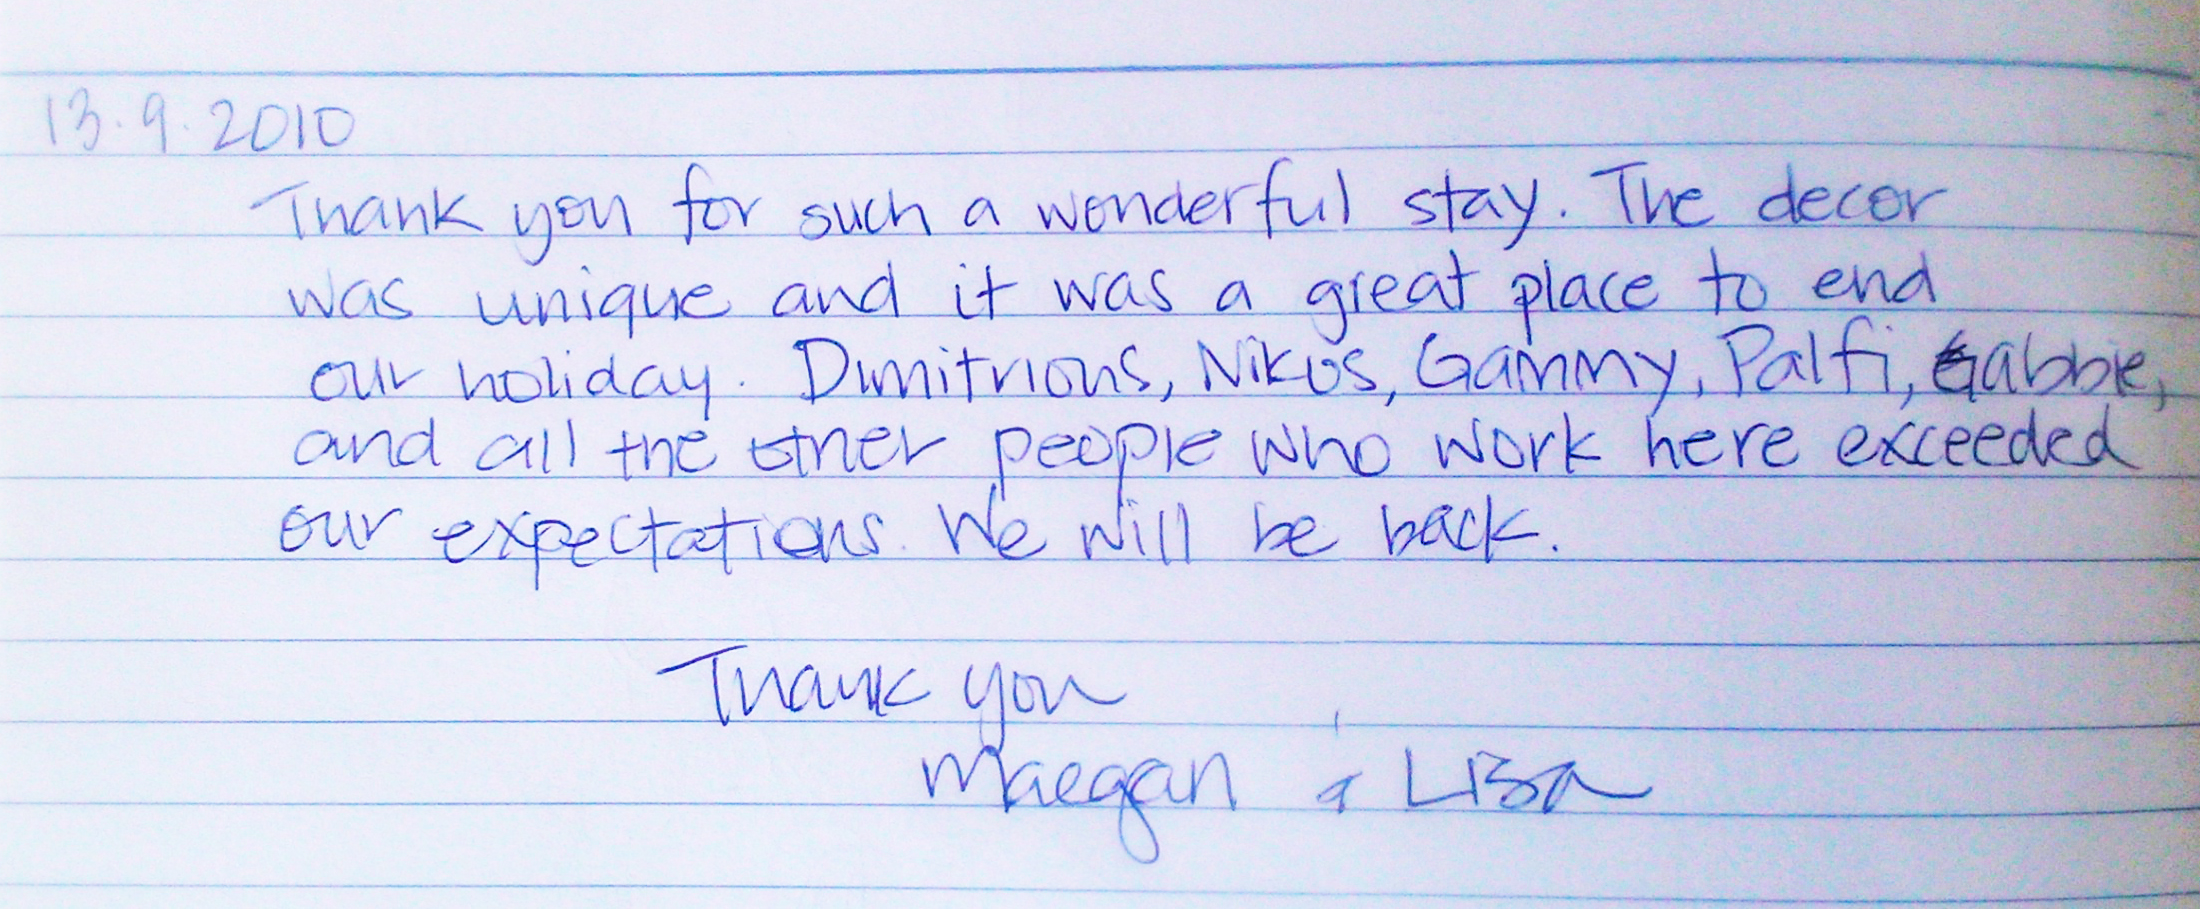 13.9.2010
Thank you for such a wonderful stay. The decor
was unique and it was a great place to end
our holiday. Dimitrious, Nikos, Gammy, Palfi, Gabbie,
and all the other people who work here exceeded
our expectations. We will be back.
Thank you
Maegan & Lisa